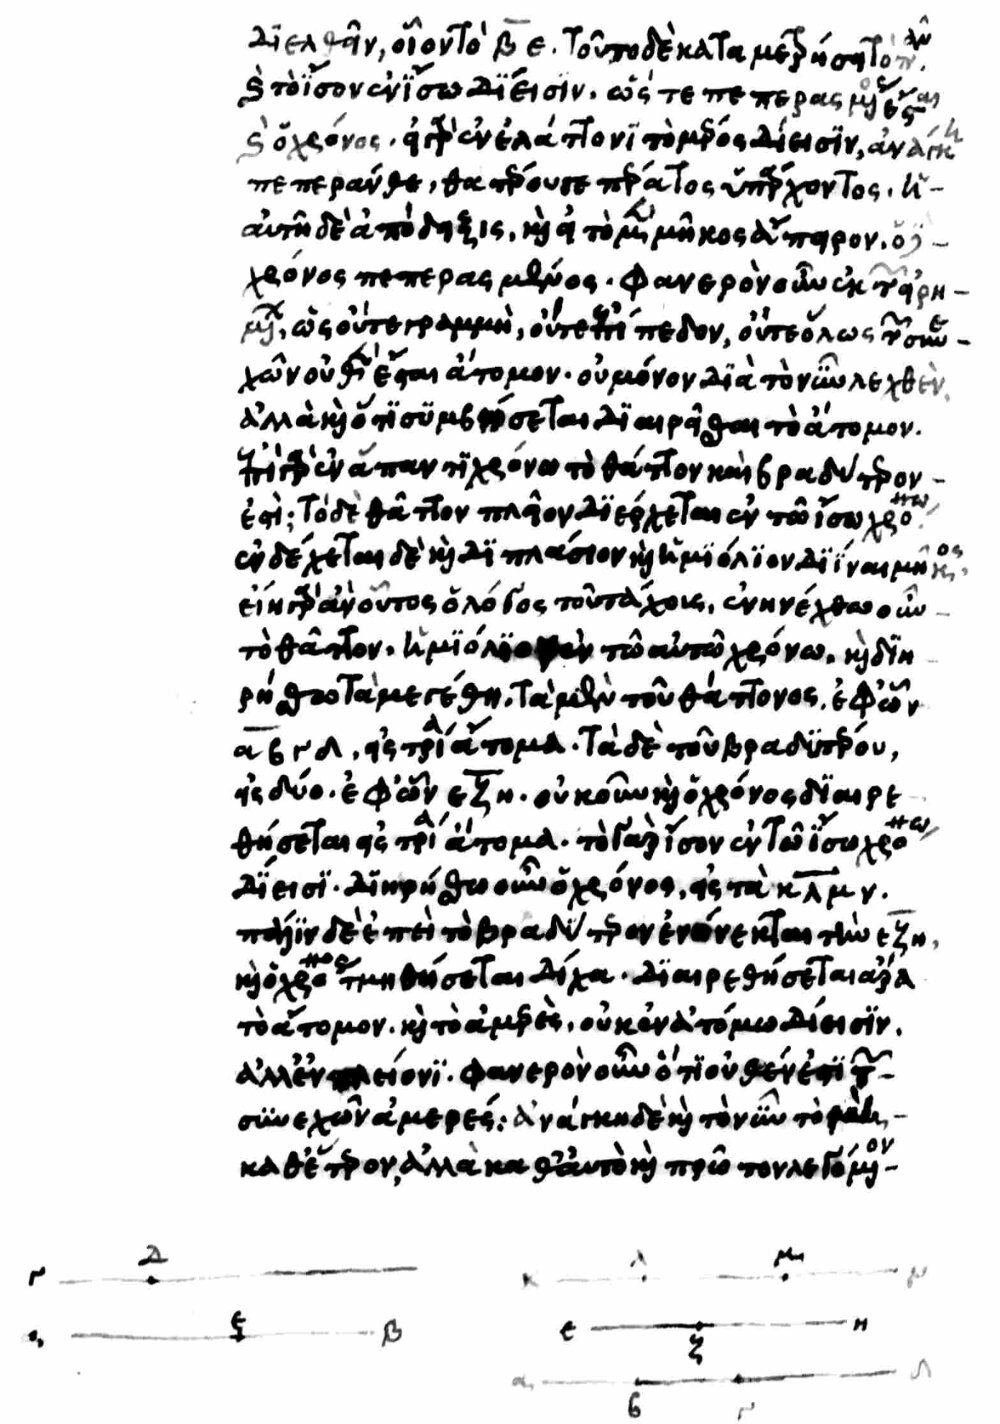 διελθεῖν, οἷον τὸ β̅ε̅. τοῦτο δὲ καταμετρήσει τὸ πᾶν.
καὶ τὸ ἴσον ἐν ἴσω δίεισιν. ὥστε πεπερασμένος ἔσται
καὶ ὁ χρόνος. εἰ γὰρ ἐν ἐλάττονι τὸ μέρος δίεισιν, ἀνάγκη
πεπεράνθαι, θατέρου γε πέρατος ὑπάρχοντος. ἡ
αὐτὴ δὲ ἀπόδειξις, καὶ εἰ τὸ μὲν μῆκος ἄπειρον. ὁ δὲ
χρόνος πεπερασμένος. φανερὸν οὖν ἐκ τῶν εἰρη
μένων, ὡς οὔτε γραμμὴ, οὔτε ἐπίπεδον, οὔτε ὅλως τῶν συνε
χῶν οὐθέν ἔσται ἄτομον. οὐ μόνον διὰ τὸ νῦν λεχθὲν,
ἀλλὰ καὶ ὅτι συμβήσεται διαιρεῖσθαι τὸ ἄτομον.
ἐπεὶ γὰρ ἐν ἅπαντι χρόνω τὸ θᾶττον καὶ βραδύτερον
ἐστι; τὸ δὲ θᾶττον πλεῖον διέρχεται ἐν τῶ ἴσω χρόνω
ἐνδέχεται δὲ καὶ διπλάσιον καὶ ἡμιόλιον διϊέναι μῆκος,
εἴη γὰρ ἂν οὗτος ὁ λόγος τοῦ τάχους, ἐνηνέχθω οὖν
τὸ θᾶττον. ἡμιόλιον ἐν τῶ αὐτῶ χρόνω. καὶ διη
ρήσθω τὰ μεγέθη. τὰ μὲν τοῦ θάττονος, ἐφ' ὧν
α̅ β γ δ, εἰς τρία ἄτομα. τὰ δὲ τοῦ βραδυτέρου,
εἰς δύο. ἐφ' ὧν ε̅ ζ̅ η. οὐκοῦν καὶ ὁ χρόνος διαιρε
θήσεται εἰς τρία ἄτομα. τὸ γὰρ ἴσον ἐν τῶ ἴσω χρόνω
δίεισι. διηρήσθω οὖν ὁ χρόνος, εἰς τὰ κ λ̅ μ ν.
πάλιν δὲ ἐπεὶ τὸ βραδύτερον ἐνήνεκται τὴν ε̅ζ̅η̅,
καὶ ὁ χρόνος τμηθήσεται δίχα. διαιρεθήσεται ἄρα
τὸ ἄτομον. καὶ τὸ ἀμερὲς, οὐκ ἐν ἀτόμω δίεισιν.
ἀλλ' ἐν πλείονι. φανερὸν οὖν ὅτι οὐθέν ἐστι τῶν
συνεχῶν ἀμερές. ἀνάγκη δὲ καὶ τὸ νῦν τὸ μὴ
καθ' ἕτερον, ἀλλὰ καθ' αὑτὸ καὶ πρῶτον λεγόμενον
γ δ κ λ μ ν
α ε β ε ζ η
α β γ δ